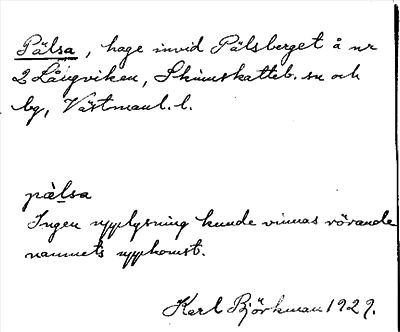 Pälsa, hage invid Pälsberget å nr
2 Långviken, Skinnskatteb. sn och
bg, Västmanl. l.
pälsa
Ingen upplysning kunde vinnas rörande
namnets uppkomst.
Karl Björkman 1929.